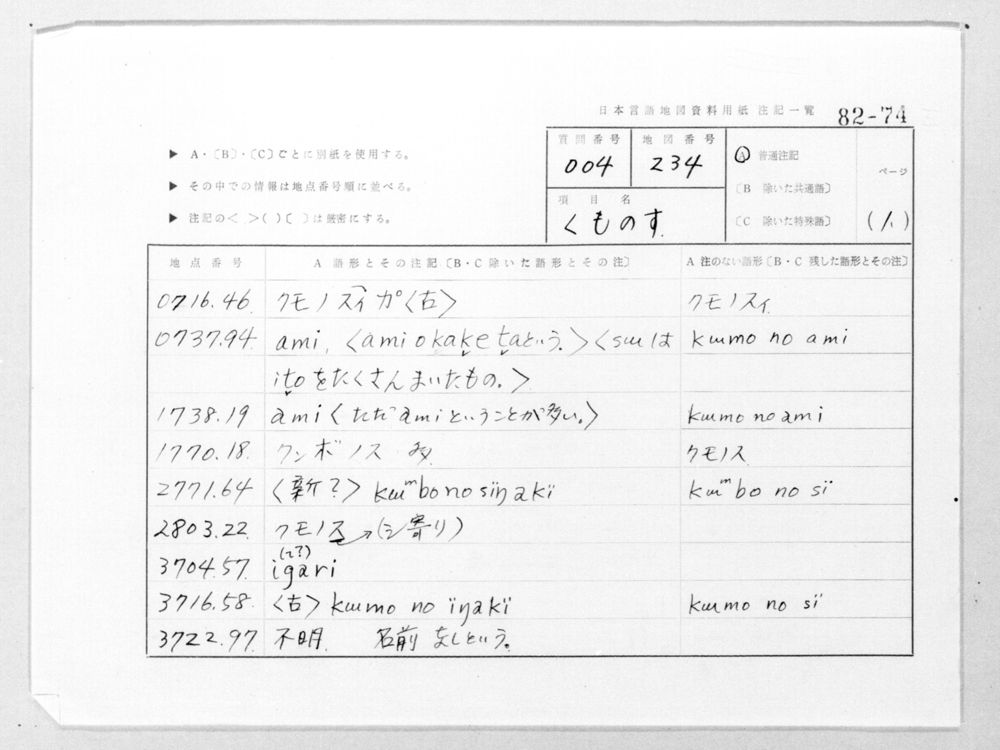 日本言語地図資料用紙 注記一覧 82-74
▶ A・〔B〕・〔C〕ごとに別紙を使用する。
▶ その中での情報は地点番号順に並べる。
▶ 注記の〈 〉( )〔 〕は厳密にする。
質問番号 地図番号
004 234
項目名
くものす
Ⓐ 普通注記
〔B 除いた共通語〕
〔C 除いた特殊語〕
ページ
(1.)
地点番号 A 語形とその注記〔B・C 除いた語形とその注〕 A 注のない語形〔B・C 残した語形とその注〕
0716.46. クモノスイガ〈古〉 クモノスィ
0737.94. ami. 〈ami okake taという。〉〈sɯは kɯmo no ami
itoをたくさんまいたもの。〉
1738.19 ami〈ただamiということが多い。〉 kɯmo no ami
1770.18. クンボノス 多 クモノス
2771.64 〈新?〉kɯᵐbo no sïŋakï kɯᵐbo no sï
2803.22. クモノス→(シ寄り)
3704.57. igari
3716.58. 〈古〉kɯmo no ïŋakï kɯmo no sï
3722.97. 不明 名前なしという。